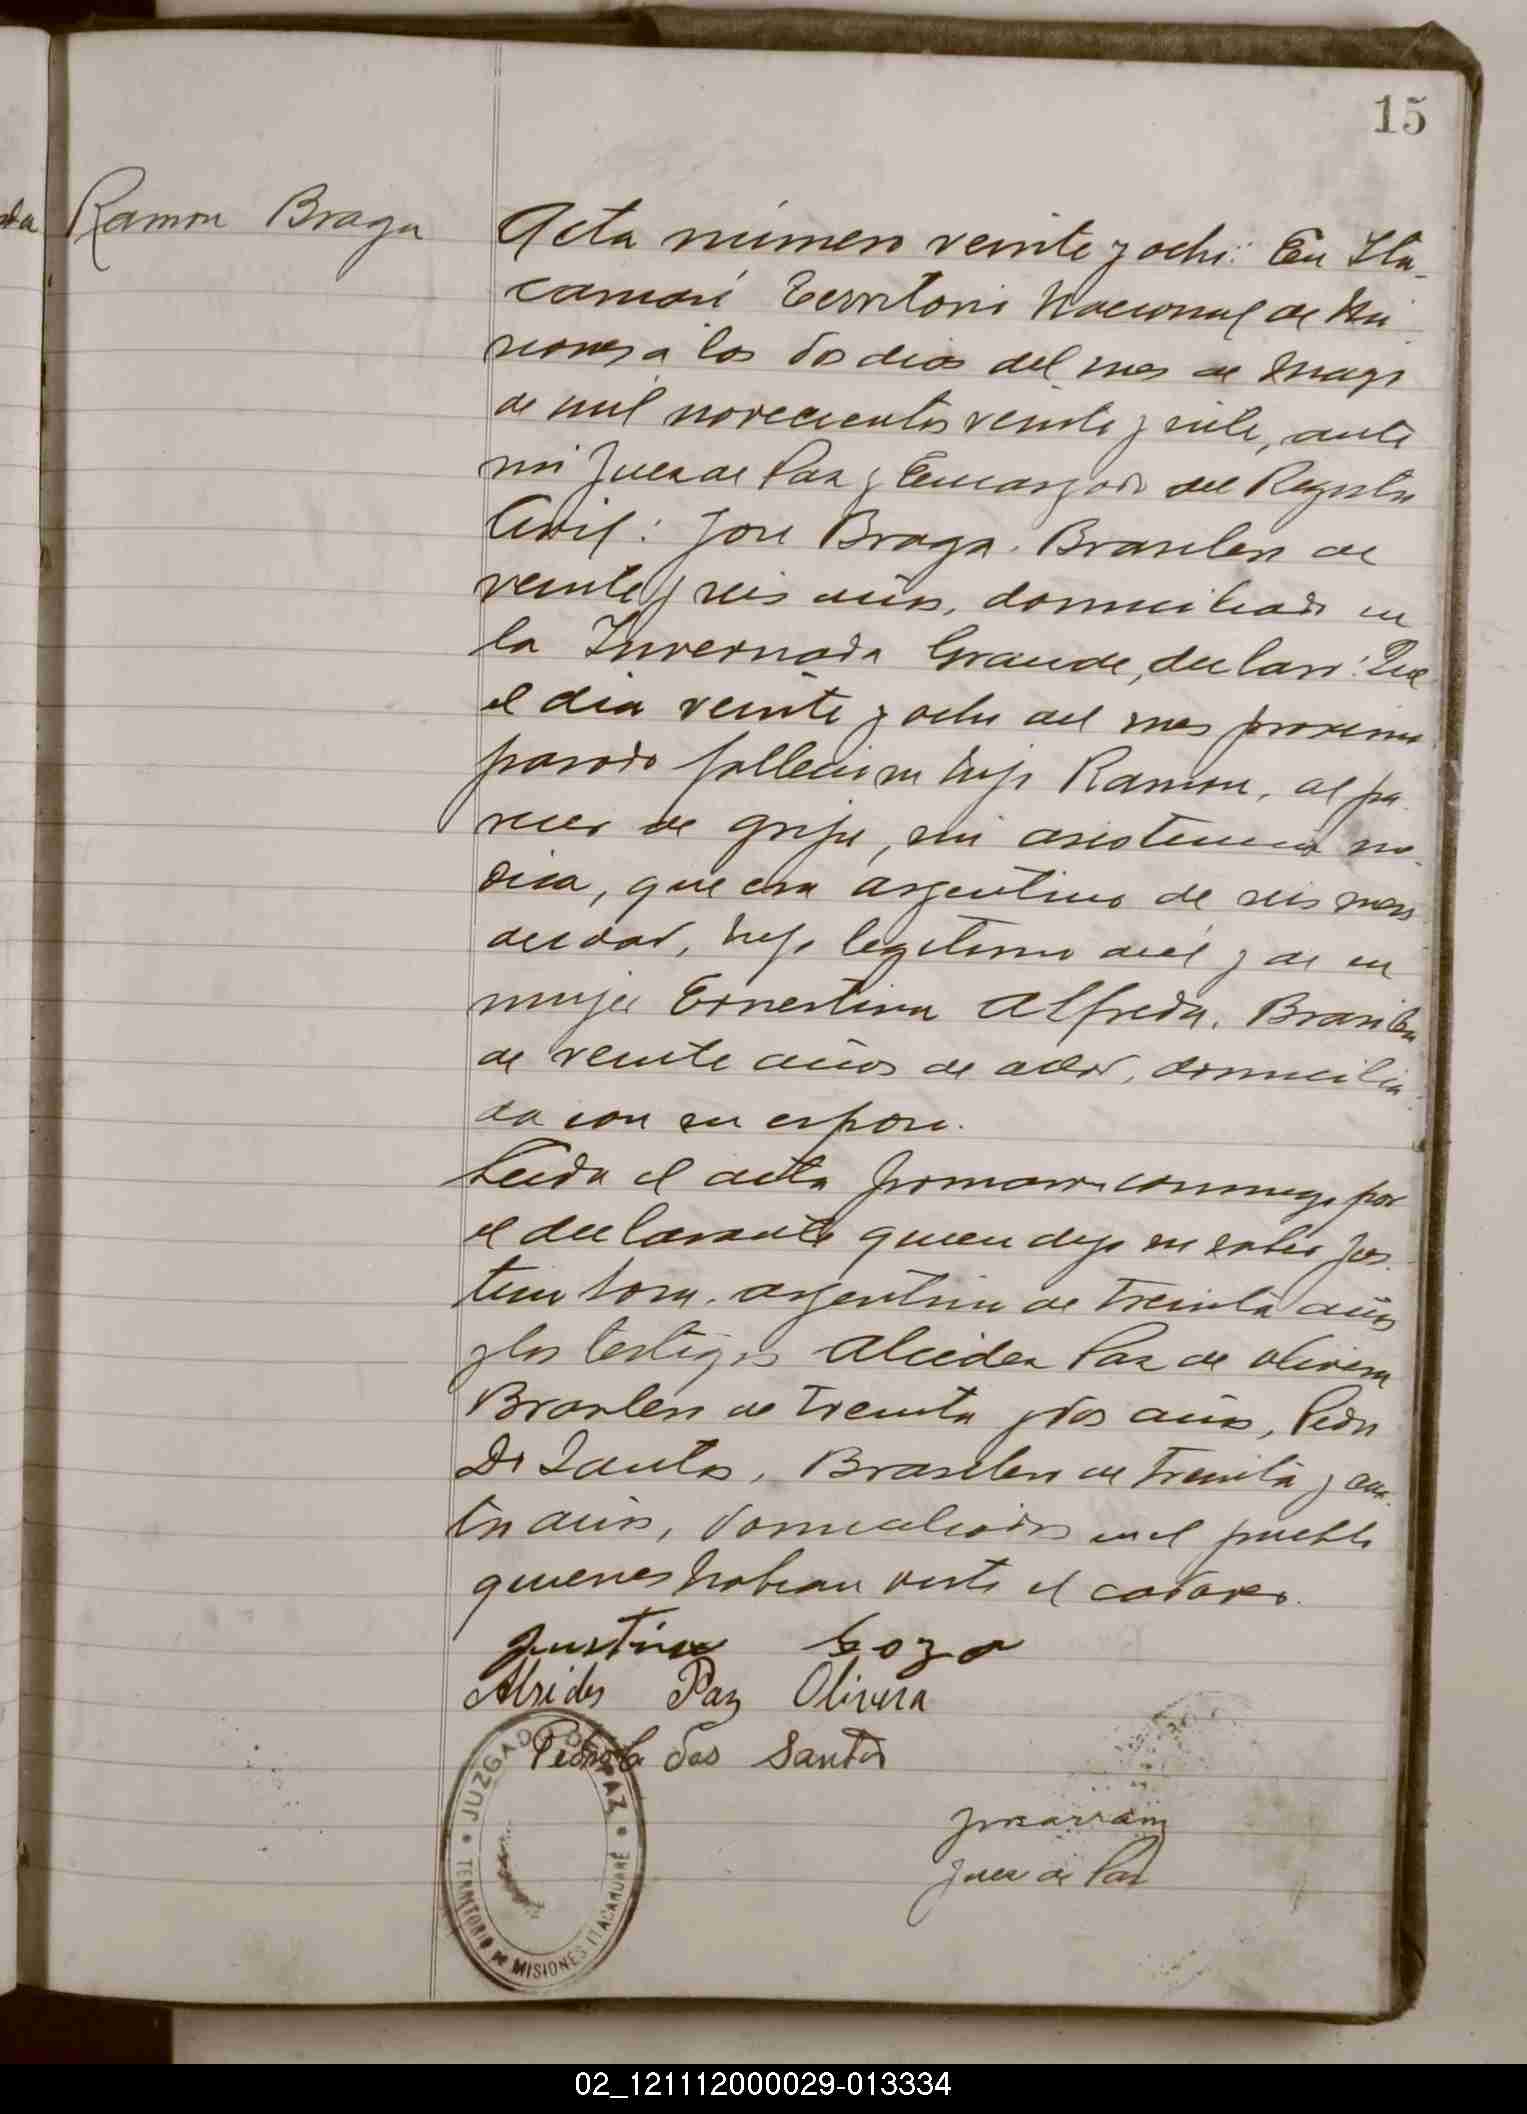 15
Ramon Braga
Acta número veinte y ocho: En Ita-
caruaré Territorio Nacional de Mi
siones a los dos dias del mes de Mayo
de mil novecientos veinte y siete, ante
mi Juez de Paz y Encargado del Registro
Civil: José Braga. Brasilero de
veinte y seis años, domiciliado en
la Invernada Grande, declaró: Que
el dia veinte y ocho del mes proximo
pasado falleció su hijo Ramon, al pa-
recer de gripe, sin asistencia me-
dica, que era argentino de seis meses
de edad, hijo legitimo de él y de su
mujer Ernestina Alfreda. Brasilera
de veinte años de edad, domicilia-
da con su esposo.
Leida el acta firmaron conmigo por
el declarante quien dijo no saber Jus-
tino Sosa. argentino de treinta años
y los testigos Alcides Paz de Olivera
Brasilero de treinta y dos años, Pedro
Do Santos, Brasilero de treinta y cua-
tro años, domiciliados en el pueblo
quienes habian visto el cadaver.
Justino Soza
Alsides Paz Olivera
Pedro dos Santos
Juez de Paz
JUZGADO DE PAZ
TERRITORIO DE MISIONES ITACARUARÉ
02_121112000029-013334